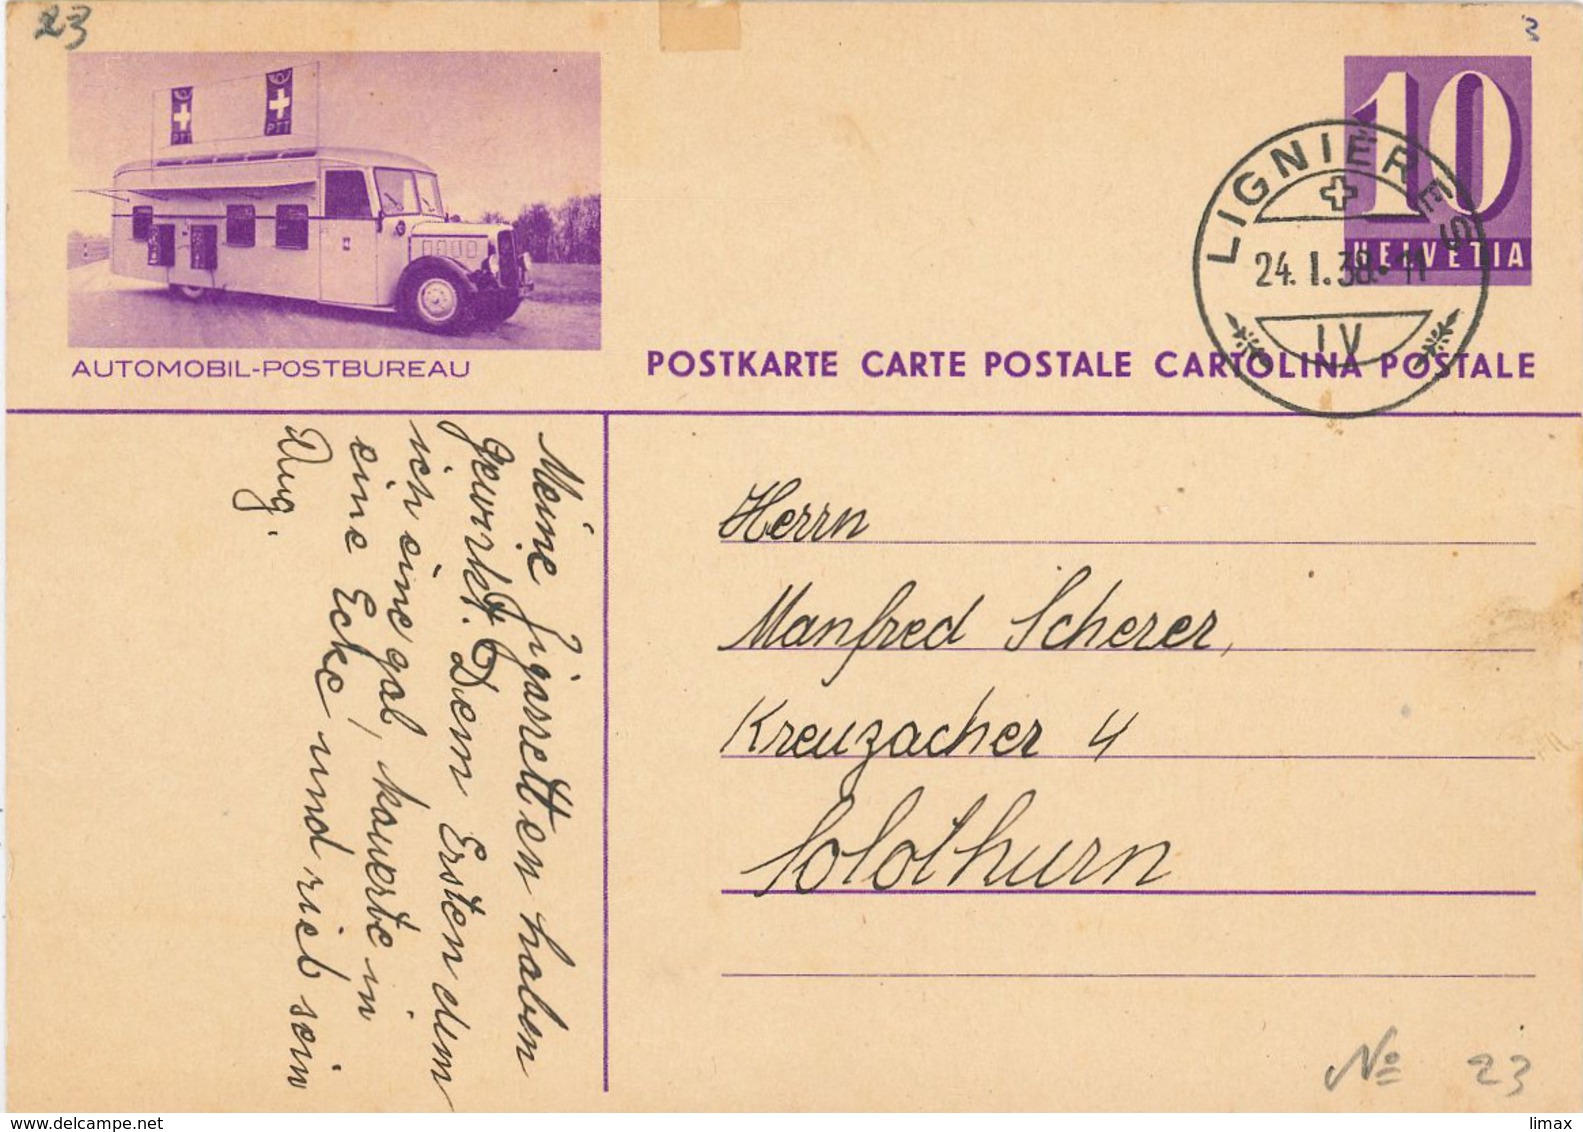 23
3
PTT
PTT
10
HELVETIA
LIGNIÈRES
24. I. 38. 11
LV
AUTOMOBIL-POSTBUREAU
POSTKARTE CARTE POSTALE CARTOLINA POSTALE
Meine Zigaretten haben
gewirkt. Dem Ersten dem
ich eine gab, kauerte in
eine Ecke und rieb sein
Aug.
Herrn
Manfred Scherer,
Kreuzacher 4
Solothurn
No 23
www.delcampe.net
limax